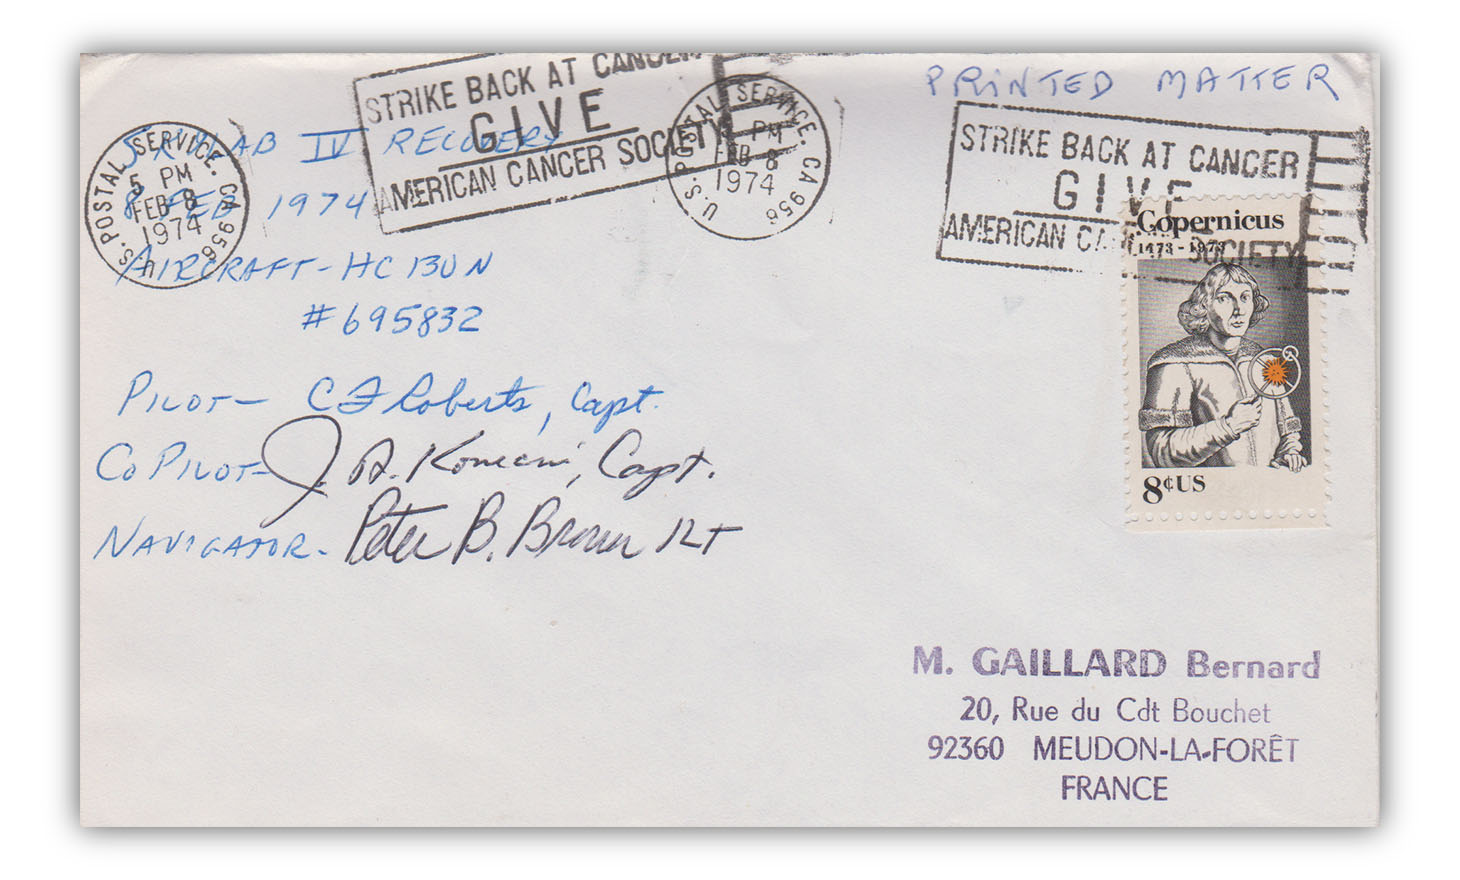 PRINTED MATTER
STRIKE BACK AT CANCER
GIVE
AMERICAN CANCER SOCIETY
U.S. POSTAL SERVICE. CA 956
5 PM
FEB 8
1974
U.S. POSTAL SERVICE. CA 956
PM
FEB 8
1974
STRIKE BACK AT CANCER
GIVE
AMERICAN CANCER SOCIETY
SKYLAB IV RECOVERY
8 FEB 1974
AIRCRAFT - HC 130 N
#695832
PILOT - C F Roberts, Capt.
CO PILOT - J. A. Capt.
NAVIGATOR - Peter B. 1Lt
Copernicus
1473-1973
8¢ US
M. GAILLARD Bernard
20, Rue du Cdt Bouchet
92360 MEUDON-LA-FORÊT
FRANCE